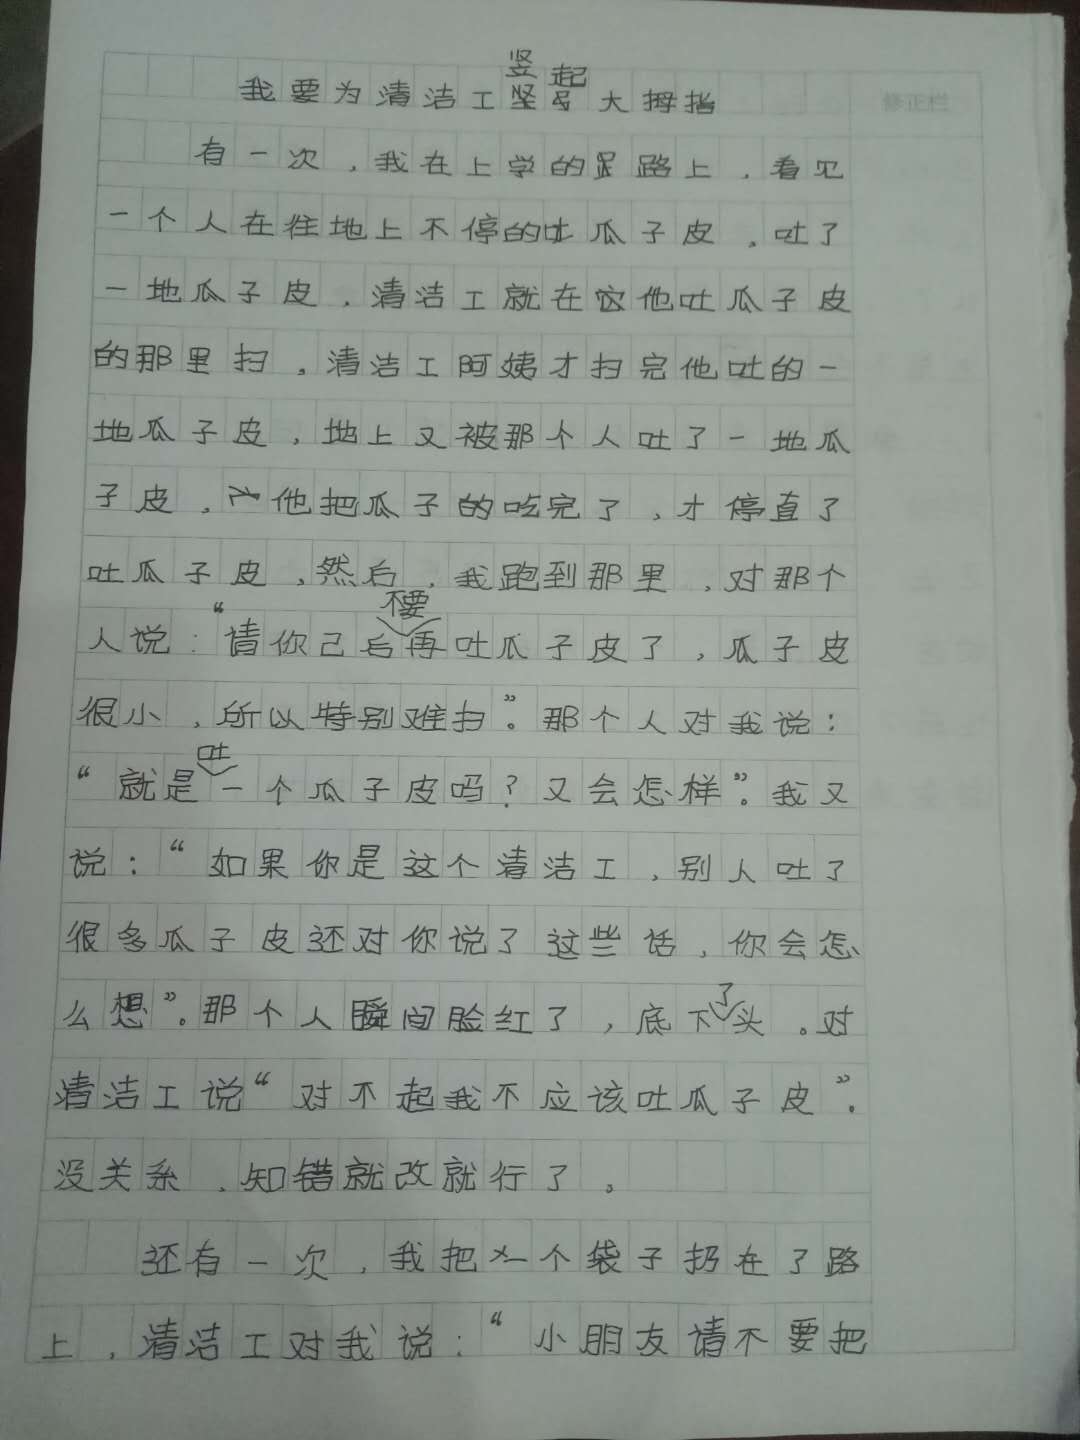 我要为清洁工竖起大拇指
修正栏
有一次，我在上学的路上，看见
一个人在往地上不停的吐瓜子皮，吐了
一地瓜子皮，清洁工就在他吐瓜子皮
的那里扫，清洁工阿姨才扫完他吐的一
地瓜子皮，地上又被那个人吐了一地瓜
子皮，他把瓜子的吃完了，才停直了
吐瓜子皮，然后，我跑到那里，对那个
人说：“请你己后不要再吐瓜子皮了，瓜子皮
很小，所以特别难扫”。那个人对我说：
“就是吐一个瓜子皮吗？又会怎样”。我又
说：“如果你是这个清洁工，别人吐了
很多瓜子皮还对你说了这些话，你会怎
么想”。那个人瞬间脸红了，底下了头。对
清洁工说“对不起我不应该吐瓜子皮”。
没关系，知错就改就行了。
还有一次，我把一个袋子扔在了路
上，清洁工对我说：“小朋友请不要把